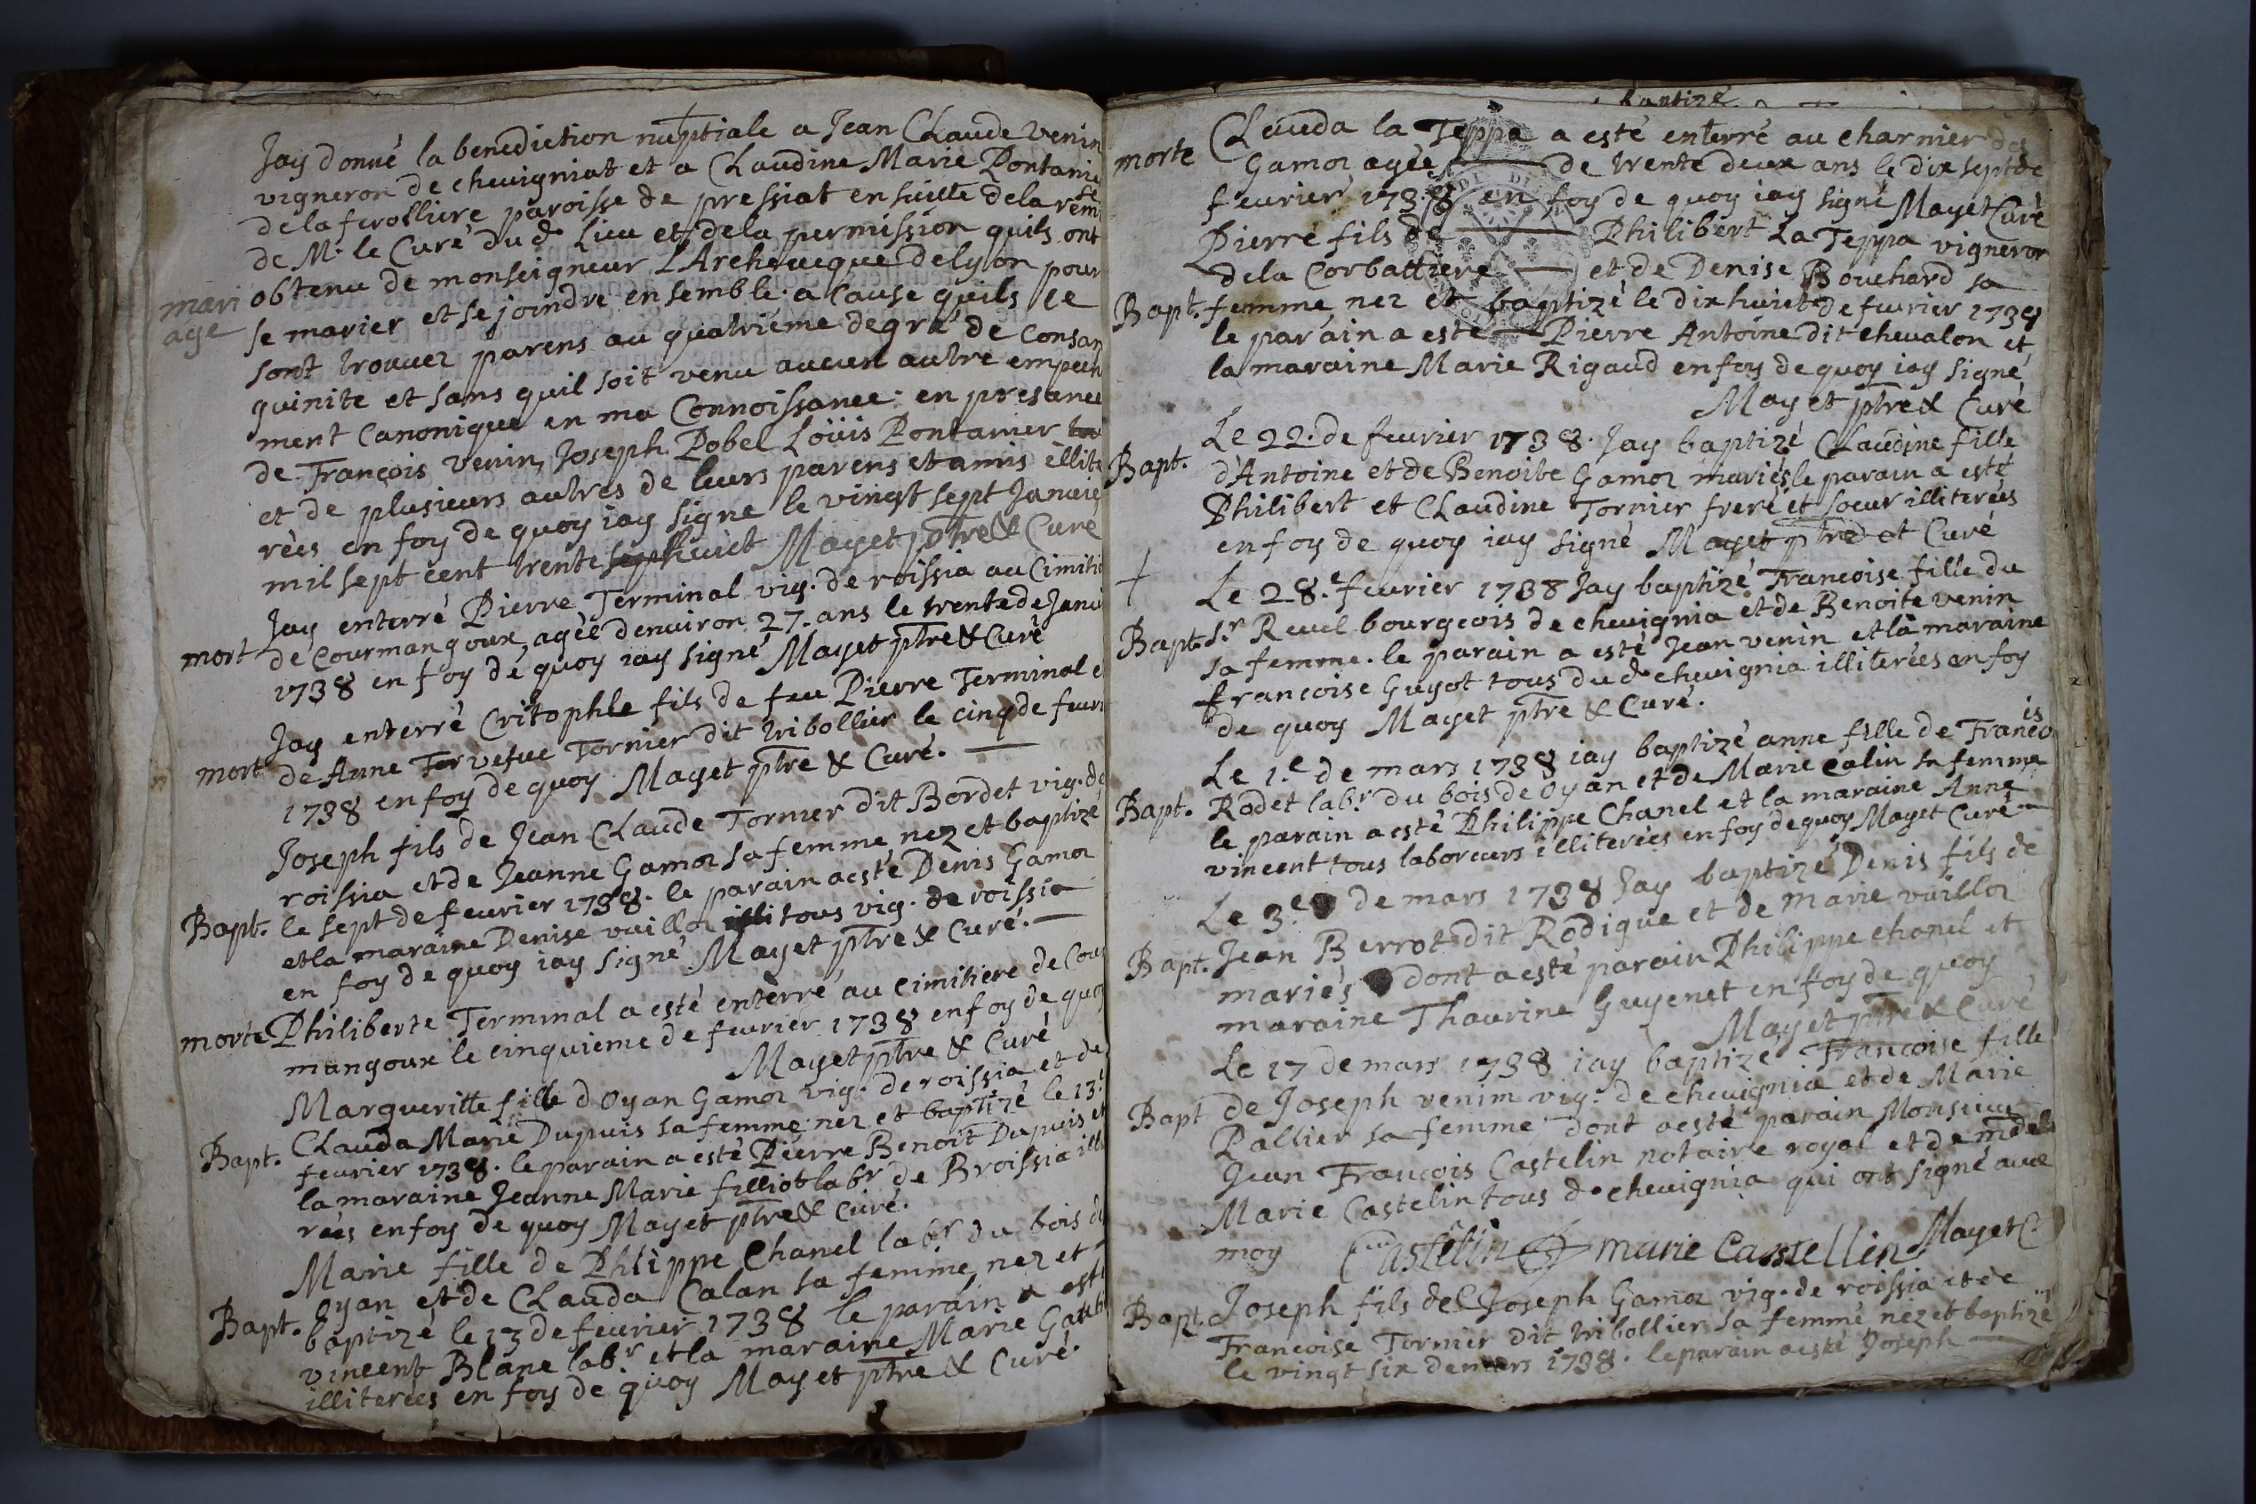 Jay donné la benediction nuptiale a Jean CLaude venin
vigneron de cheuigniat et a CLaudine Marie Pontanie
de la ferolliere paroisse de pressiat en suitte de la remi
se
de Mr le Curé du d. Lieu et de la permission quils ont
obtenu de monseigneur LArcheueque de lyon pour
mari
age
se marier et se joindre ensemble a cause quils se
sont trouuez parens au quatriéme degré de consan
guinite et sans quil soit venu aucun autre empech
ment Canonique en ma Connoissance: en presance
de François venin, Joseph Pobel Loüis Pontanier
et de plusieurs autres de leurs parens et amis illite
rées en foy de quoy iay signe le vingt sept Januie
mil sept cent trente huict Mayet ptre & Curé
Jay enterré Pierre Terminal vig. de roissia au Cimiti
mort de Courmangoux agée denuiron 27. ans le trente de Janui
1738 en foy de quoy iay signé Mayet ptre & Curé
Jay enterré Critophle fils de feu Pierre Terminal e
mort de Anne vefue Tornier dit tribollier le cinq de feuri
1738 en foy de quoy Mayet ptre & Curé.
Joseph fils de Jean CLaude Tornier dit Bordet vig. de
roissia et de Jeanne Gamoz sa femme, nez et baptizé
Bapt. le sept de feurier 1738. le parain a esté Denis Gamoz
et la maraine Denise vuilloz tous vig. de roissia
en foy de quoy iay signé Mayet ptre & Curé.
morte Philiberte Terminal a esté enterré au cimitiere de Cour
mangoux le cinquieme de feurier 1738 en foy de quoy
Mayet ptre & Curé
Margueritte fille dOyan Gamoz vig. de roissia et de
Bapt. CLauda Marie Dupuis sa femme nez et baptizé le 13.e
feurier 1738. le parain a esté Pierre Benoit Dupuis et
la maraine Jeanne Marie filliot labr de Broissia illi
rées en foy de quoy Mayet ptre & Curé.
Marie fille de Phlippe Chanel labr du bois d
oyan et de CLauda Calan sa femme nez et
Bapt. baptizé le 13 de feurier 1738 le parain a esté
vincent Blanc labr et la maraine Marie
illiterées en foy de quoy Mayet ptre & Curé.
CLauda la Teppa a esté enterré au charnier des
morte Gamoz agée de trente deux ans le dix sept de
feurier 1738 en foy de quoy iay signé Mayet Curé
Pierre fils de Philibert La Teppa vigneron
de la Corbattiere et de Denise Bouchard sa
Bapt. femme, nez et baptizé le dix huict de feurier 1738
le parain a esté Pierre Antoine dit cheualon et
la maraine Marie Rigaud en foy de quoy iay signé
Mayet ptre & Curé
Le 22. de feurier 1738. Jay baptizé CLaudine fille
Bapt. d'Antoine et de Benoite Gamoz mariés le parain a esté
Philibert et CLaudine Tornier frere et soeur illiterées
en foy de quoy iay signé Mayet ptre et Curé
Le 28.e feurier 1738 Jay baptizé Francoise fille du
Bapt. Sr Reuel bourgeois de cheuignia et de Benoite venin
sa femme. le parain a esté Jean venin et la maraine
francoise Guyot tous du d. cheuignia illiterées en foy
de quoy Mayet ptre & Curé.
Le 1.e de mars 1738 iay baptizé anne fille de Franco
is
Bapt. Rodet labr du bois de Oyan et de Marie calin sa femme
le parain a esté Philippe Chanel et la maraine Anne
vincent tous laboreurs illiterées en foy de quoy Mayet Curé
Le 3.e de mars 1738 Jay baptizé Denis fils de
Bapt. Jean Berrot dit Rodigue et de Marie vuilloz
mariés dont a esté parain Philippe chanel et
maraine Thaurine Guyenet en foy de quoy
Mayet ptre & Curé
Le 17 de mars 1738 iay baptizé Francoise fille
Bapt de Joseph venim vig. de cheuignia et de Marie
Pallier sa femme dont a esté parain Monsieur
Jean François Castelin notaire royal et de mdelle
Marie Castelin tous de cheuignia qui ont signé auec
moy Castelin marie Castellin Mayet C.
Joseph fils de Joseph Gamoz vig. de roissia et de
Bapt. Francoise Tornier dit tribollier sa femme nez et baptizé
le vingt six de mars 1738. le parain a esté Joseph